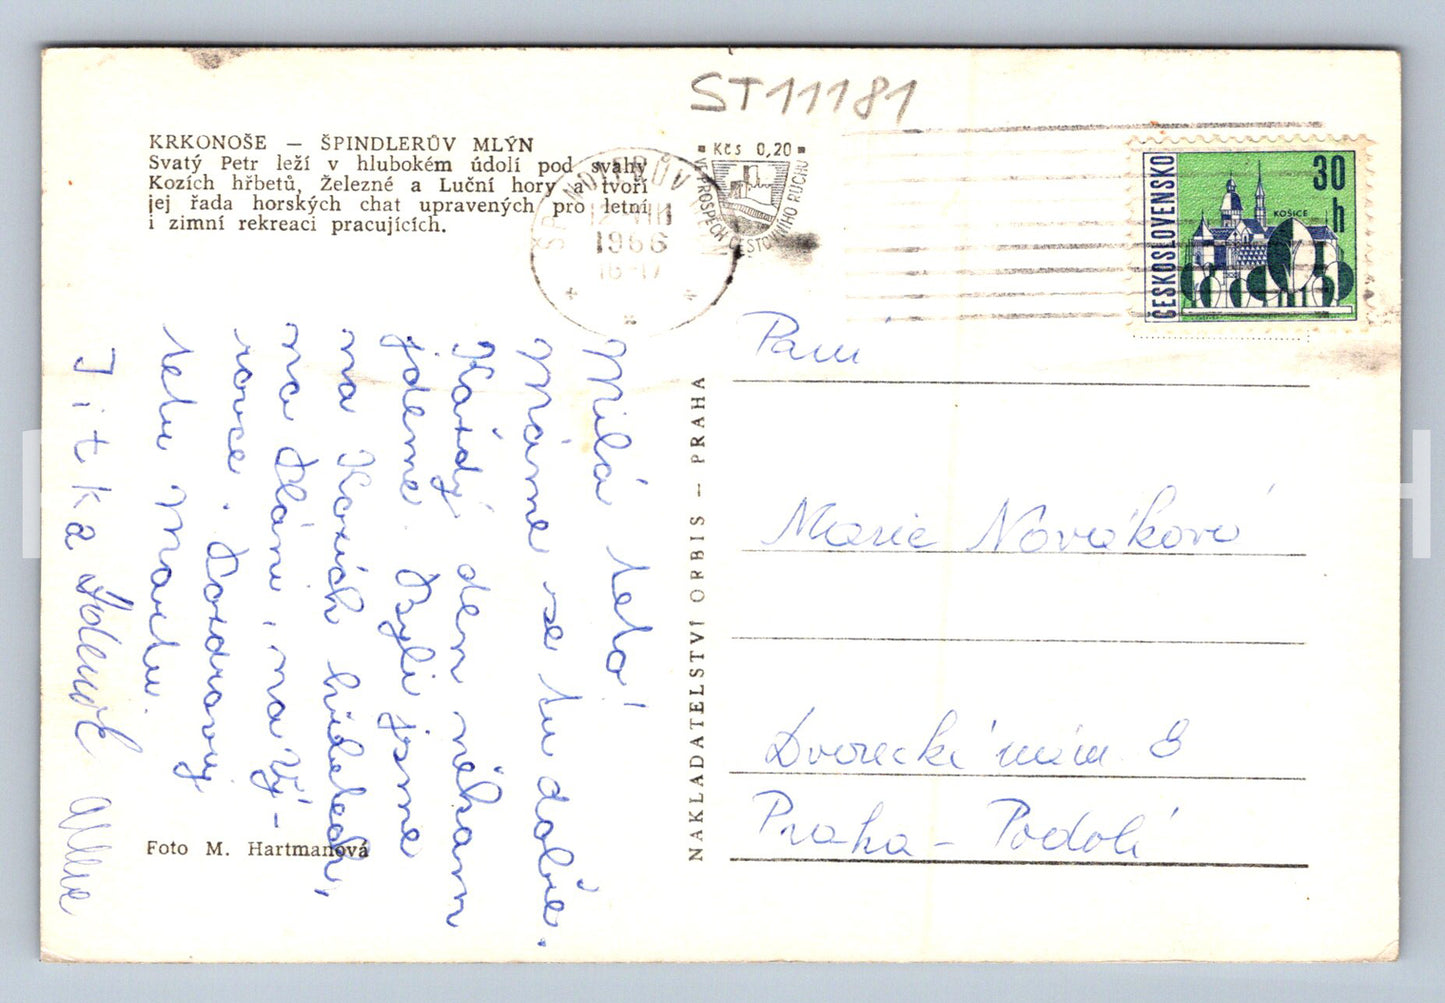 ST11181
KRKONOŠE — ŠPINDLERŮV MLÝN
Svatý Petr leží v hlubokém údolí pod svahy
Kozích hřbetů, Železné a Luční hory a tvoří
jej řada horských chat upravených pro letní
i zimní rekreaci pracujících.
1966
16-17
Kčs 0,20
VE PROSPĚCH CESTOVNÍHO RUCHU
ČESKOSLOVENSKO
30
h
KOŠICE
Milá teto!
Máme se tu dobře.
Každý den někam
jdeme. Byli jsme
na Kozích hřbetech,
na Pláni, na Vý-
rovce. Pozdravuj
tetu Martu.
Jitka Zdeněk
NAKLADATELSTVÍ ORBIS — PRAHA
Paní
Marie Nováková
Dvorecké nám 8
Praha - Podolí
Foto M. Hartmanová